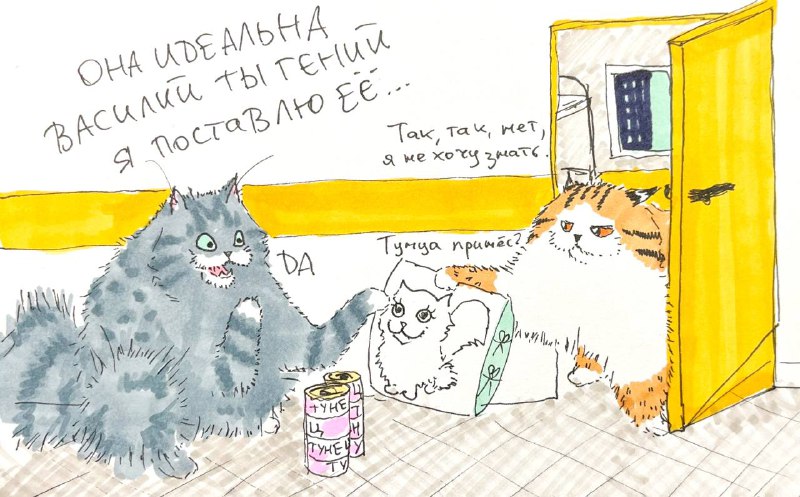 ОНА ИДЕАЛЬНА
ВАСИЛИЙ ТЫ ГЕНИЙ
Я ПОСТАВЛЮ ЕЁ...
Так, так, нет,
я не хочу знать.
Тунца принёс?
DA
ТУНЕ
Ц
ТУНЕ
ТУ
Т
Н
У